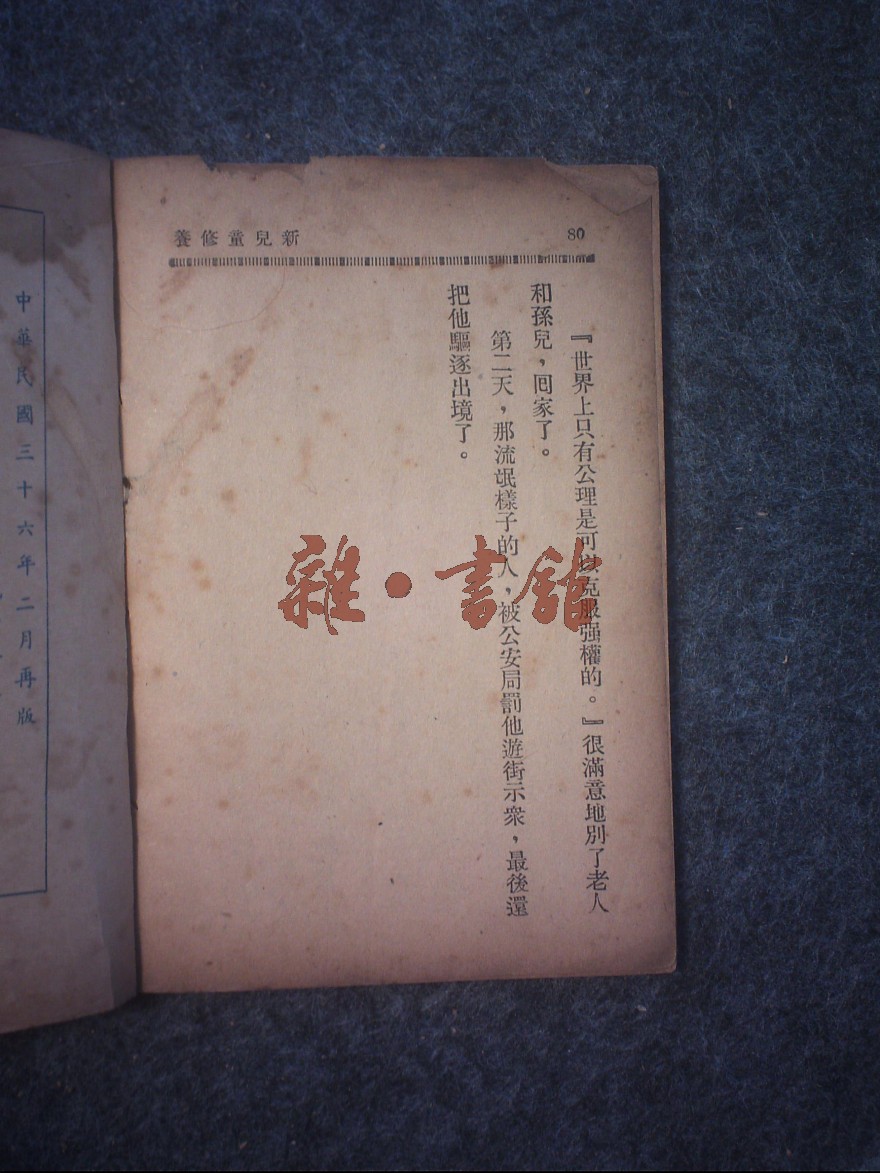 80
新兒童修養
『世界上只有公理是可以克服强權的。』很滿意地別了老人
和孫兒，回家了。
第二天，那流氓樣子的人，被公安局罰他遊街示衆，最後還
把他驅逐出境了。
中華民國三十六年二月再版
雜·書館